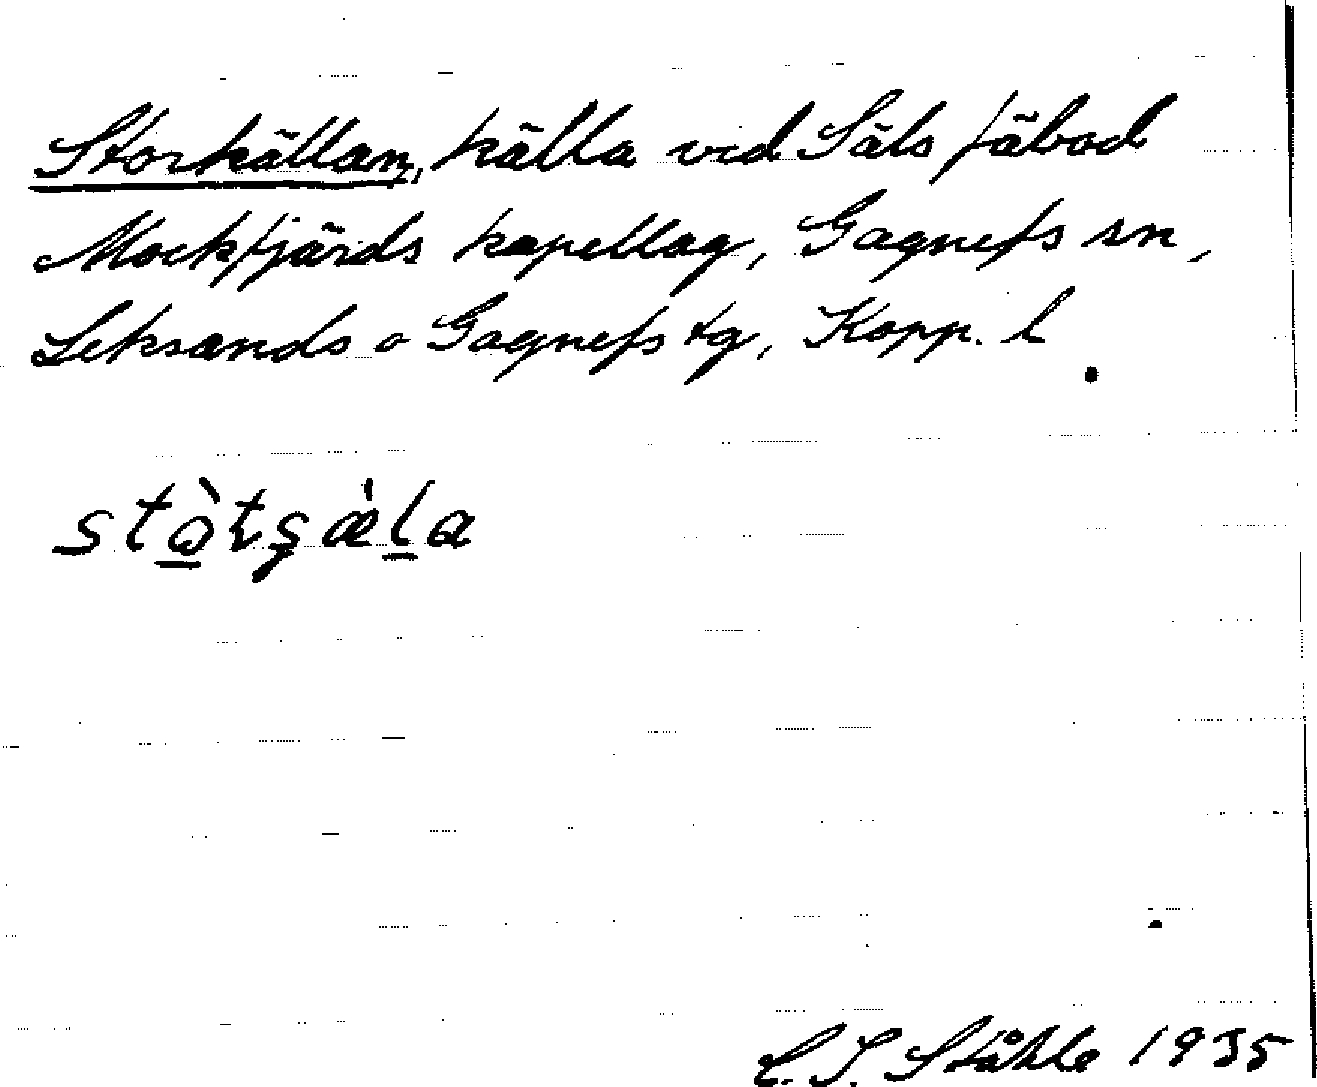 Storkällan, källa vid Säls fäbod
Mockfjärds kapellag, Gagnefs sn,
Leksands o Gagnefs tg, Kopp. l
C. I. Ståhle 1935